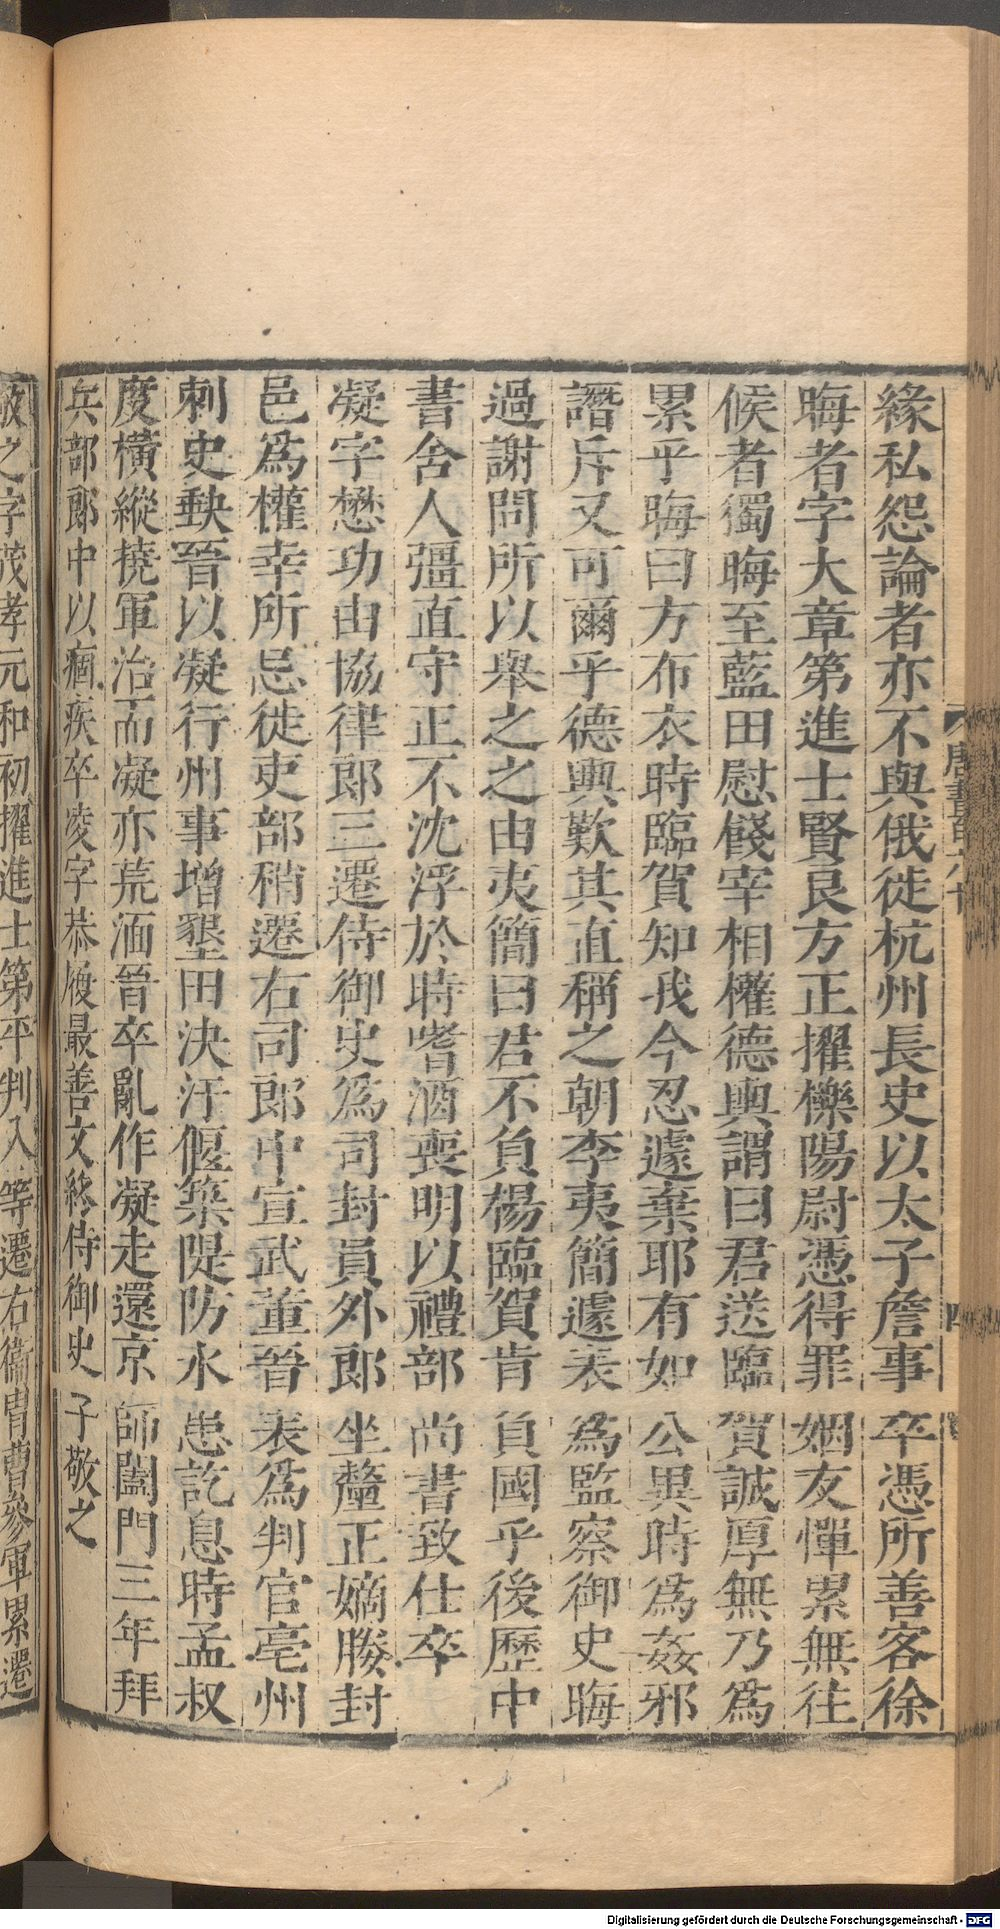 緣私怨論者亦不與俄徙杭州長史以太子詹事卒憑所善客徐
晦者字大章第進士賢良方正擢櫟陽尉憑得罪姻友憚累無往
候者獨晦至藍田慰餞宰相權德輿謂曰君送臨賀誠厚無乃為
累乎晦曰方布衣時臨賀知我今忍遽棄耶有如公異時為姦邪
譖斥又可爾乎德輿歎其直稱之朝李夷簡遽表為監察御史晦
過謝問所以舉之之由夷簡曰君不負楊臨賀肯負國乎後歷中
書舍人彊直守正不沈浮於時嗜酒喪明以禮部尚書致仕卒
凝字懋功由協律郎三遷侍御史為司封員外郎坐釐正嫡媵封
邑為權幸所忌徙吏部稍遷右司郎中宣武董晉表為判官亳州
刺史缺晉以凝行州事增墾田決汙偃築隄防水患訖息時孟叔
度橫縱撓軍治而凝亦荒湎晉卒亂作凝走還京師闔門三年拜
兵部郎中以痼疾卒凌字恭履最善文終侍御史子敬之
敬之字茂孝元和初擢進士第平判入等遷右衛冑曹參軍累遷
唐書百六十
四
Digitalisierung gefördert durch die Deutsche Forschungsgemeinschaft - DFG